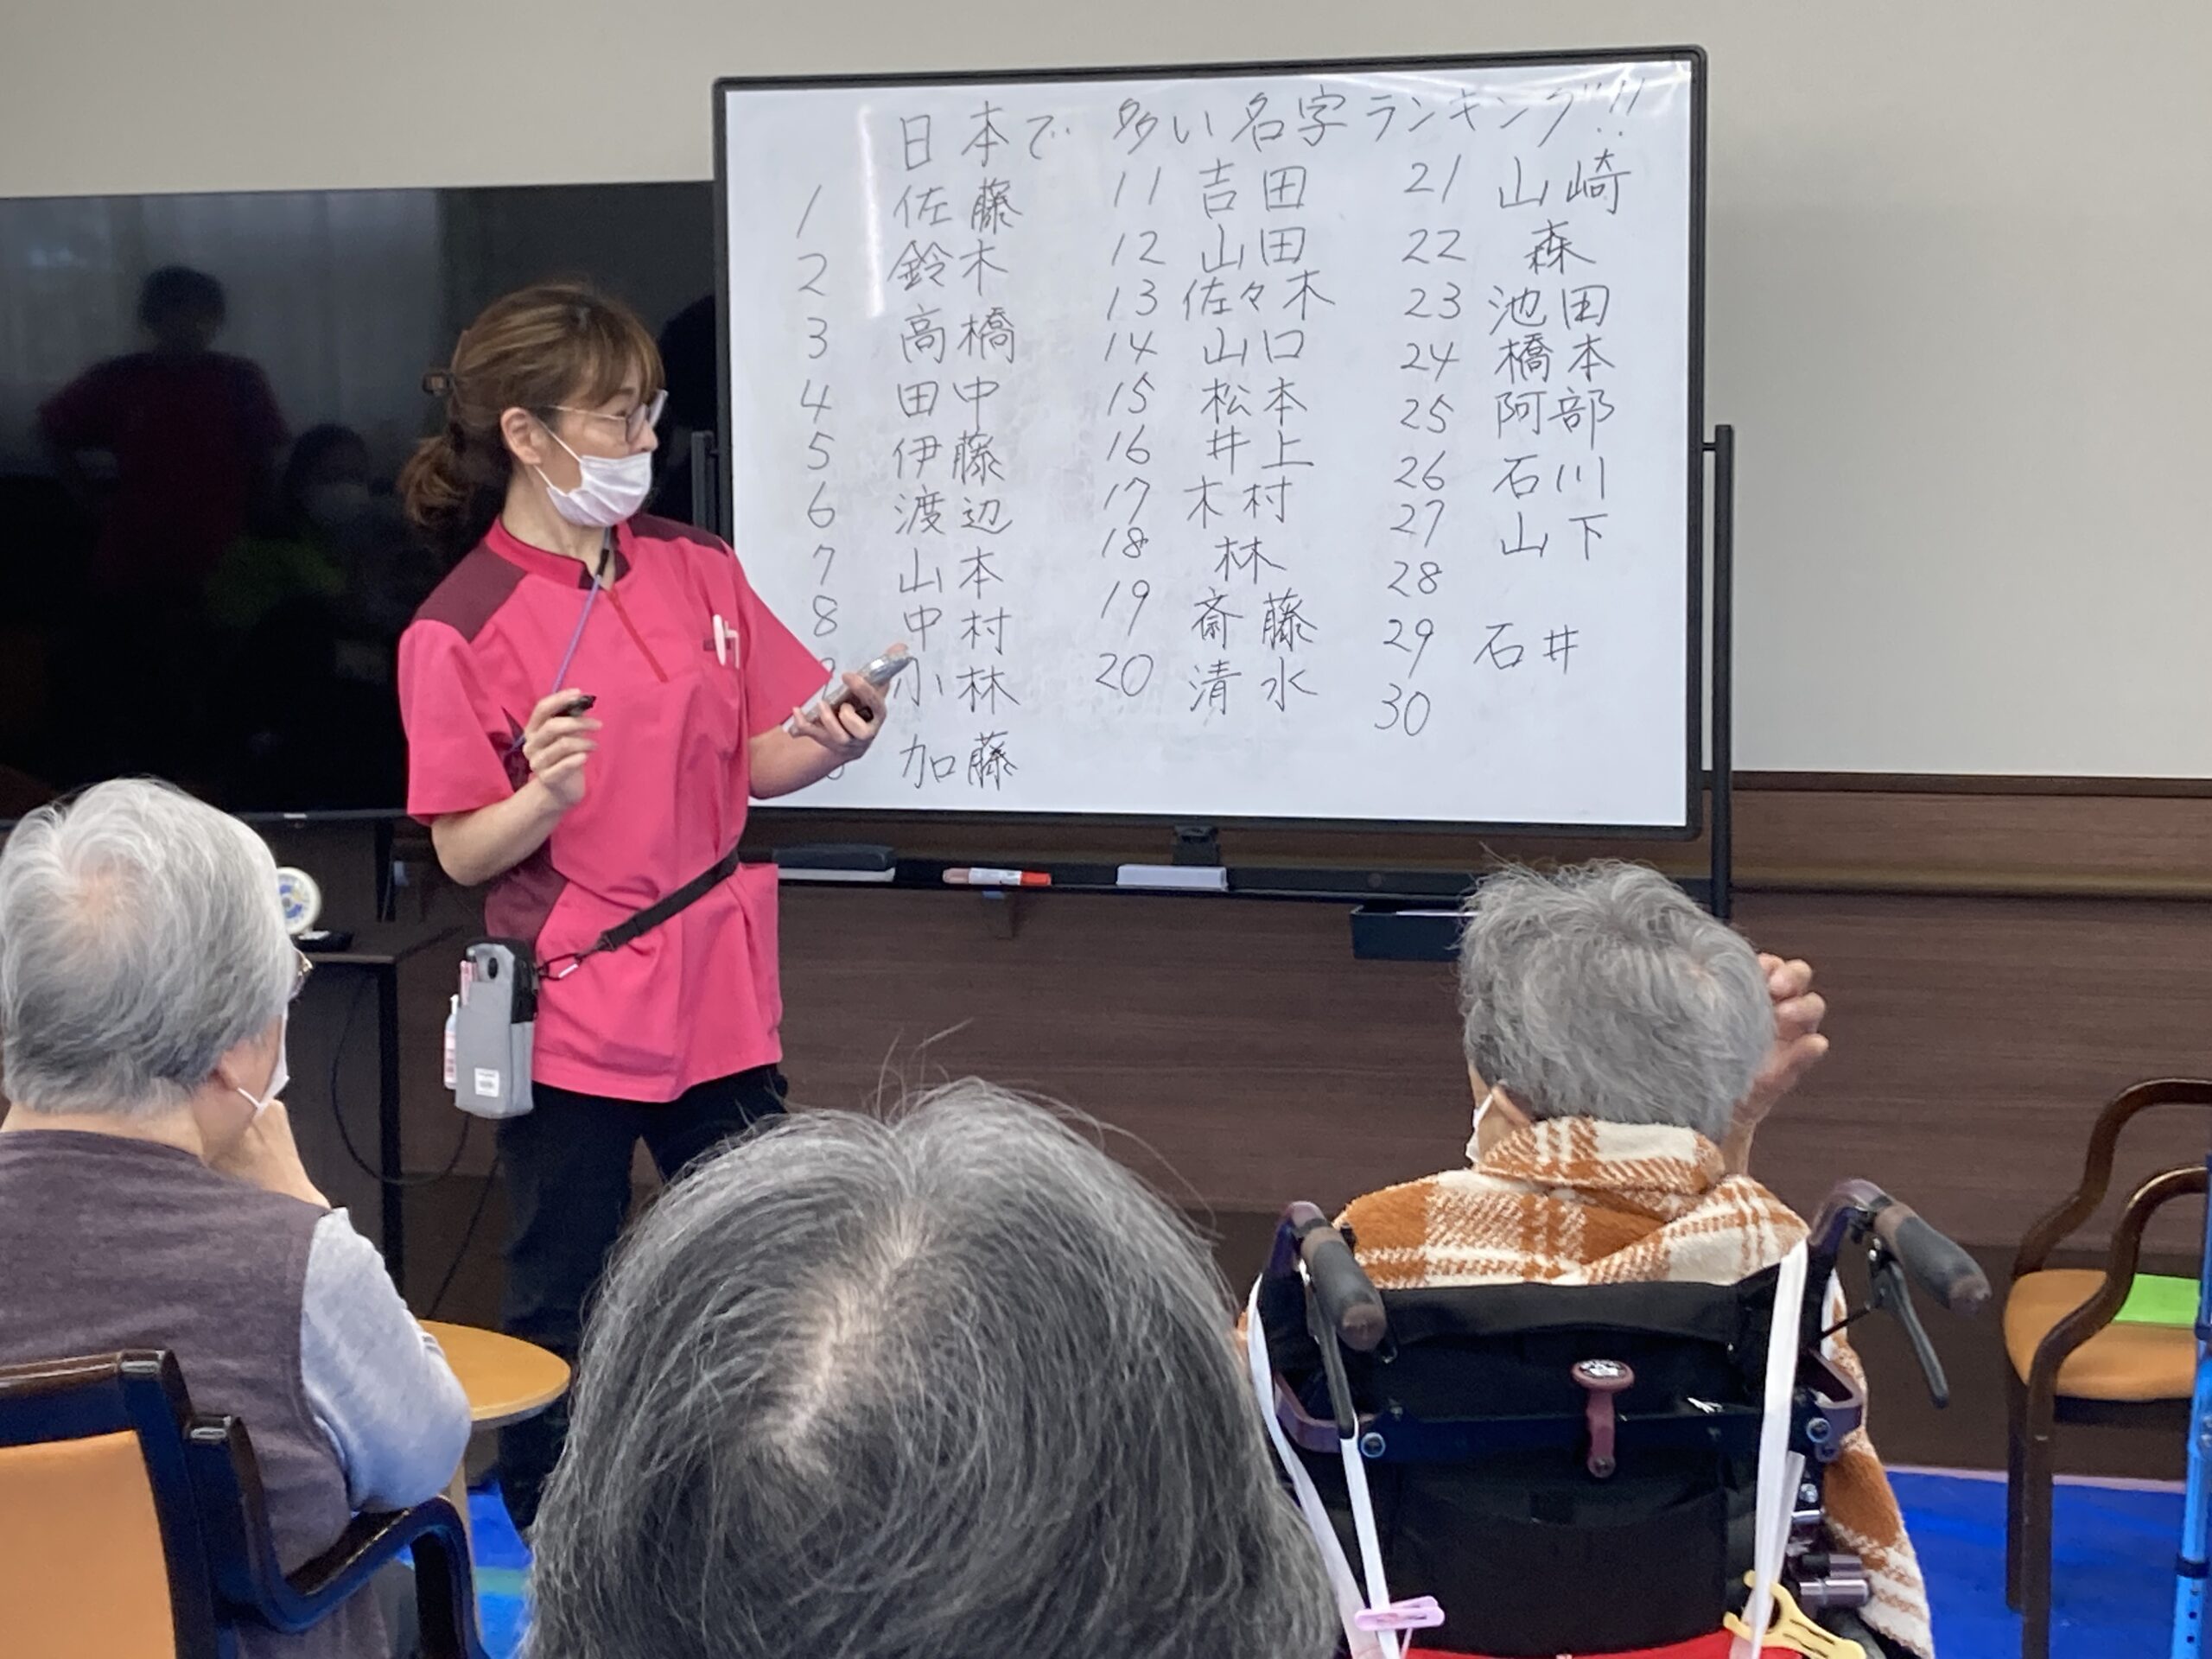 日本で 多い名字ランキング!!
1 佐藤
2 鈴木
3 高橋
4 田中
5 伊藤
6 渡辺
7 山本
8 中村
小林
加藤
11 吉田
12 山田
13 佐々木
14 山口
15 松本
16 井上
17 木村
18 林
19 斎藤
20 清水
21 山崎
22 森
23 池田
24 橋本
25 阿部
26 石川
27 山下
28
29 石井
30